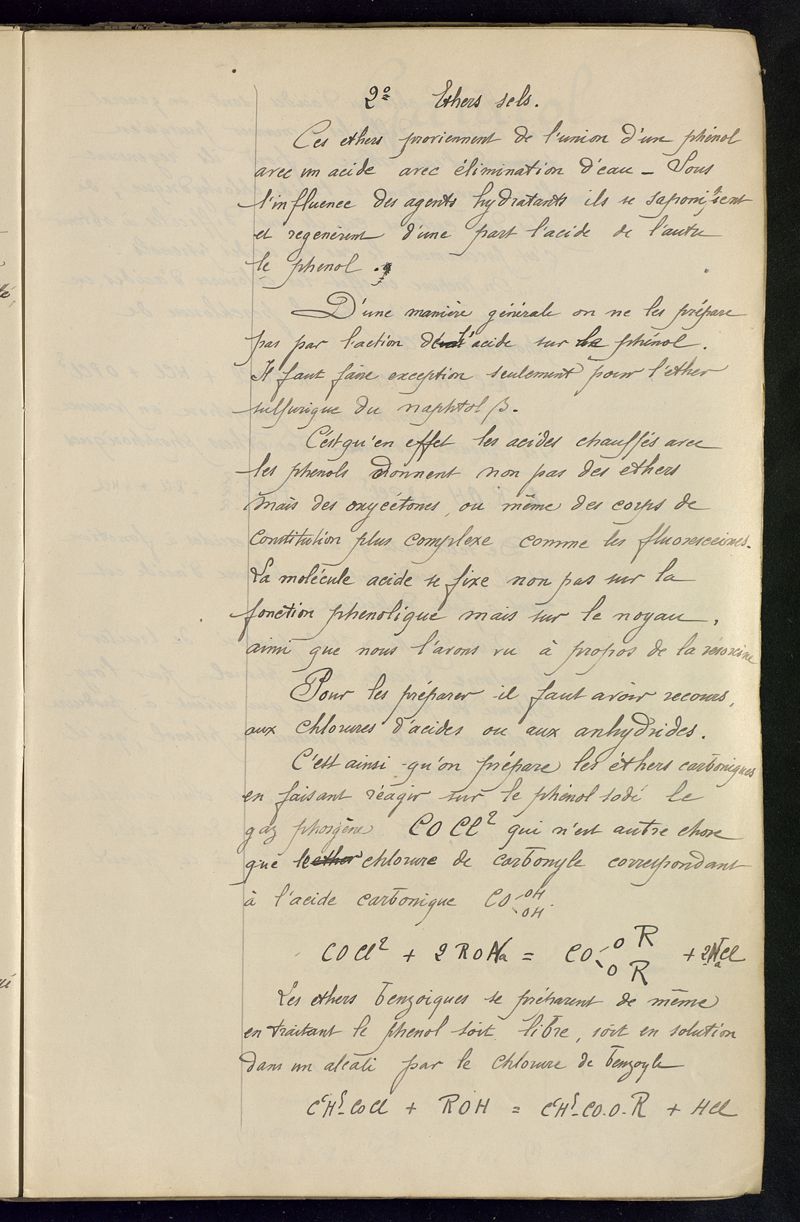 2º Ethers sels.
Ces ethers proviennent de l'union d'un phénol
avec un acide avec élimination d'eau _ Sous
l'influence des agents hydratants ils se saponifient
et regenèrent d'une part l'acide de l'autre
le phenol.
D'une manière générale on ne les prépare
pas par l'action de l'acide sur le phénol.
Il faut faire exception seulement pour l'ether
sulfurique du naphtol β.
C'est qu'en effet les acides chauffés avec
les phenols donnent non pas des ethers
mais des oxycétones, ou même des corps de
constitution plus complexe comme les fluoresceines.
La molécule acide se fixe non pas sur la
fonction phenolique mais sur le noyau,
ainsi que nous l'avons vu à propos de la résorcine
Pour les préparer il faut avoir recours,
aux chlorures d'acides ou aux anhydrides.
C'est ainsi qu'on prépare les éthers carboniques
en faisant réagir sur le phénol sodé le
gaz phosgène CO Cl² qui n'est autre chose
que le chlorure de carbonyle correspondant
à l'acide carbonique CO OH OH.
COCl² + 2 RONa = CO O R O R + 2NaCl
Les ethers benzoiques se préparent de même
en traitant le phenol soit libre, soit en solution
dans un alcali par le chlorure de benzoyle
C⁶H⁵-COCl + ROH = C⁶H⁵-CO.O-R + HCl